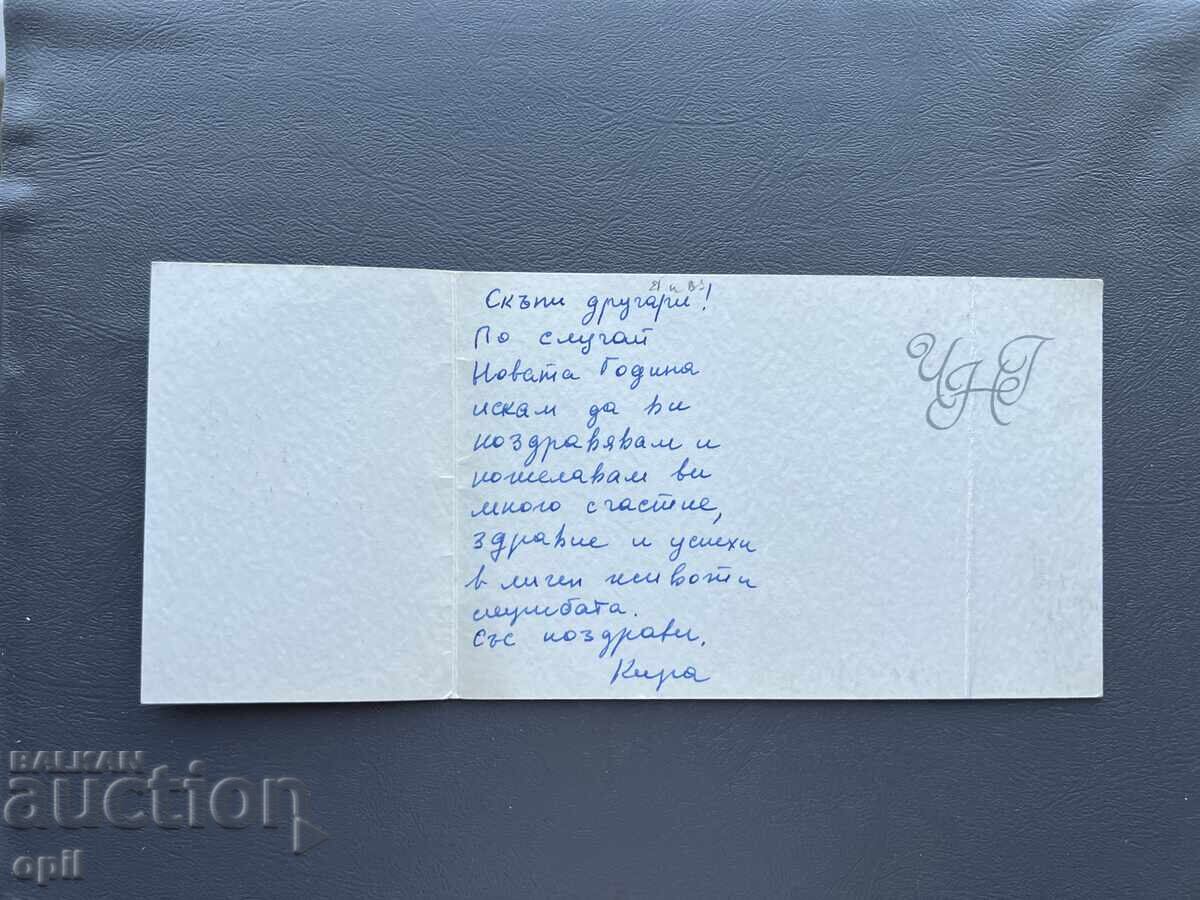 Скъпи другари!
По случай
Новата Година
искам да ви
поздравявам и
пожелавам ви
много счастие,
здравие и успехи
в личен живот и
службата.
Със поздрави.
Кира
ЧНГ
BALKAN
auction
opil